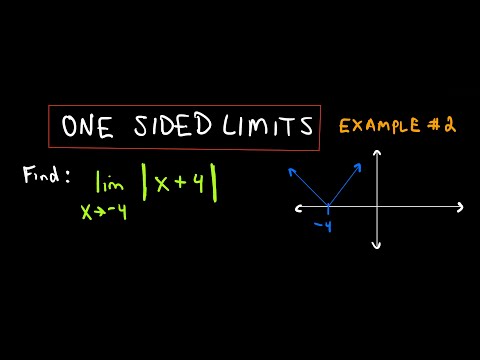 ONE SIDED LIMITS
EXAMPLE #2
Find: lim |x+4|
x→-4
-4